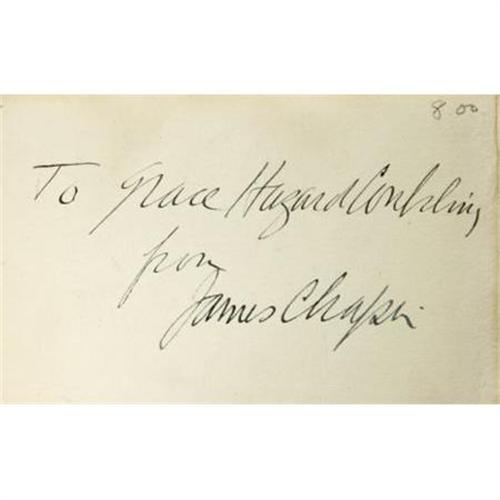 8 00
To Grace Hazard Conkling
from
James Chapin